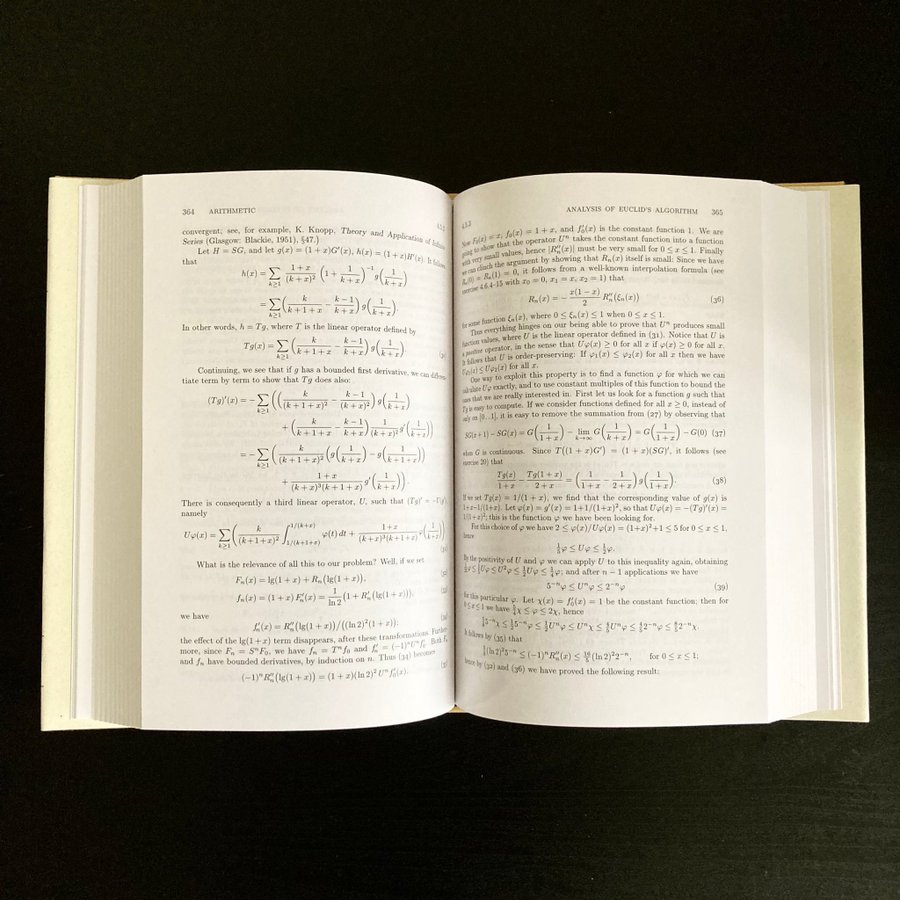 364 ARITHMETIC
4.5.3
convergent; see, for example, K. Knopp, Theory and Application of Infinite
Series (Glasgow: Blackie, 1951), §47.)
Let H = SG, and let g(x) = (1+x)G′(x), h(x) = (1+x)H′(x). It follows
that
h(x) = ∑_{k≥1} (1+x)/(k+x)² (1 + 1/(k+x))⁻¹ g(1/(k+x))
= ∑_{k≥1} (k/(k+1+x) − (k−1)/(k+x)) g(1/(k+x)).
In other words, h = Tg, where T is the linear operator defined by
Tg(x) = ∑_{k≥1} (k/(k+1+x) − (k−1)/(k+x)) g(1/(k+x))
Continuing, we see that if g has a bounded first derivative, we can differen-
tiate term by term to show that Tg does also:
(Tg)′(x) = −∑_{k≥1} ((k/(k+1+x)² − (k−1)/(k+x)²) g(1/(k+x))
+ (k/(k+1+x) − (k−1)/(k+x)) 1/(k+x)² g′(1/(k+x)))
= −∑_{k≥1} (k/(k+1+x)² (g(1/(k+x)) − g(1/(k+1+x)))
+ (1+x)/((k+x)³(k+1+x)) g′(1/(k+x))).
There is consequently a third linear operator, U, such that (Tg)′ = −U(g′),
namely
Uφ(x) = ∑_{k≥1} (k/(k+1+x)² ∫_{1/(k+1+x)}^{1/(k+x)} φ(t) dt + (1+x)/((k+x)³(k+1+x)) φ(1/(k+x)))
What is the relevance of all this to our problem? Well, if we set
Fₙ(x) = lg(1+x) + Rₙ(lg(1+x)),
fₙ(x) = (1+x) Fₙ′(x) = 1/ln 2 (1 + Rₙ′(lg(1+x))),
we have
fₙ′(x) = Rₙ″(lg(1+x))/((ln 2)²(1+x));
the effect of the lg(1+x) term disappears, after these transformations. Further-
more, since Fₙ = SⁿF₀, we have fₙ = Tⁿf₀ and fₙ′ = (−1)ⁿUⁿf₀′. Both Fₙ
and fₙ have bounded derivatives, by induction on n. Thus (34) becomes
(−1)ⁿRₙ″(lg(1+x)) = (1+x)(ln 2)² Uⁿf₀′(x).
4.5.3 ANALYSIS OF EUCLID'S ALGORITHM 365
Now F₀(x) = x, f₀(x) = 1+x, and f₀′(x) is the constant function 1. We are
going to show that the operator Uⁿ takes the constant function into a function
with very small values, hence |Rₙ″(x)| must be very small for 0 ≤ x ≤ 1. Finally
we can clinch the argument by showing that Rₙ(x) itself is small: Since we have
Rₙ(0) = Rₙ(1) = 0, it follows from a well-known interpolation formula (see
exercise 4.6.4–15 with x₀ = 0, x₁ = x, x₂ = 1) that
Rₙ(x) = −x(1−x)/2 Rₙ″(ξₙ(x)) (36)
for some function ξₙ(x), where 0 ≤ ξₙ(x) ≤ 1 when 0 ≤ x ≤ 1.
Thus everything hinges on our being able to prove that Uⁿ produces small
function values, where U is the linear operator defined in (31). Notice that U is
a positive operator, in the sense that Uφ(x) ≥ 0 for all x if φ(x) ≥ 0 for all x.
It follows that U is order-preserving: If φ₁(x) ≤ φ₂(x) for all x then we have
Uφ₁(x) ≤ Uφ₂(x) for all x.
One way to exploit this property is to find a function φ for which we can
calculate Uφ exactly, and to use constant multiples of this function to bound the
ones that we are really interested in. First let us look for a function g such that
Tg is easy to compute. If we consider functions defined for all x ≥ 0, instead of
only on [0..1], it is easy to remove the summation from (27) by observing that
SG(x+1) − SG(x) = G(1/(1+x)) − lim_{k→∞} G(1/(k+x)) = G(1/(1+x)) − G(0) (37)
when G is continuous. Since T((1+x)G′) = (1+x)(SG)′, it follows (see
exercise 20) that
Tg(x)/(1+x) − Tg(1+x)/(2+x) = (1/(1+x) − 1/(2+x)) g(1/(1+x)). (38)
If we set Tg(x) = 1/(1+x), we find that the corresponding value of g(x) is
1+x−1/(1+x). Let φ(x) = g′(x) = 1+1/(1+x)², so that Uφ(x) = −(Tg)′(x) =
1/(1+x)²; this is the function φ we have been looking for.
For this choice of φ we have 2 ≤ φ(x)/Uφ(x) = (1+x)²+1 ≤ 5 for 0 ≤ x ≤ 1,
hence
⅕φ ≤ Uφ ≤ ½φ.
By the positivity of U and φ we can apply U to this inequality again, obtaining
1/25 φ ≤ ⅕Uφ ≤ U²φ ≤ ½Uφ ≤ ¼φ; and after n − 1 applications we have
5⁻ⁿφ ≤ Uⁿφ ≤ 2⁻ⁿφ (39)
for this particular φ. Let χ(x) = f₀′(x) = 1 be the constant function; then for
0 ≤ x ≤ 1 we have 5/4 χ ≤ φ ≤ 2χ, hence
⅝5⁻ⁿχ ≤ ½5⁻ⁿφ ≤ ½Uⁿφ ≤ Uⁿχ ≤ ⅘Uⁿφ ≤ ⅘2⁻ⁿφ ≤ 8/5 2⁻ⁿχ.
It follows by (35) that
⅝(ln 2)²5⁻ⁿ ≤ (−1)ⁿRₙ″(x) ≤ 16/5 (ln 2)²2⁻ⁿ, for 0 ≤ x ≤ 1;
hence by (32) and (36) we have proved the following result: